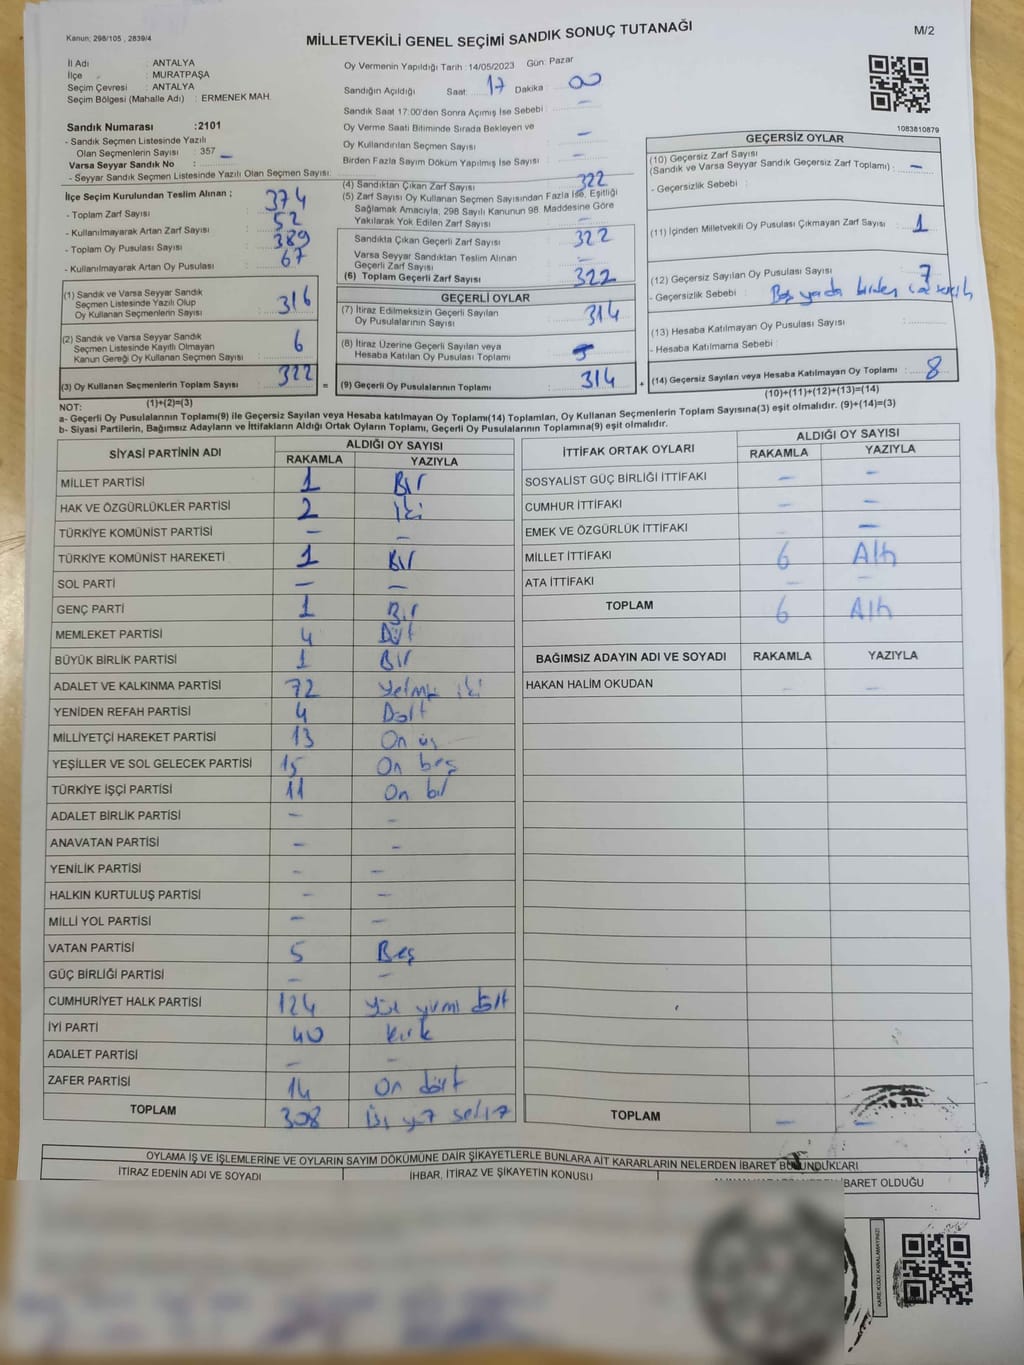 Kanun: 298/105 , 2839/4
MİLLETVEKİLİ GENEL SEÇİMİ SANDIK SONUÇ TUTANAĞI
M/2
İl Adı : ANTALYA
İlçe : MURATPAŞA
Seçim Çevresi : ANTALYA
Seçim Bölgesi (Mahalle Adı) : ERMENEK MAH.
Sandık Numarası :2101
- Sandık Seçmen Listesinde Yazılı
Olan Seçmenlerin Sayısı : 357 –
Varsa Seyyar Sandık No :
- Seyyar Sandık Seçmen Listesinde Yazılı Olan Seçmen Sayısı:
Oy Vermenin Yapıldığı Tarih :14/05/2023 Gün: Pazar
Sandığın Açıldığı Saat: 17 Dakika : 00
Sandık Saat 17:00'den Sonra Açımış İse Sebebi : –
Oy Verme Saati Bitiminde Sırada Bekleyen ve
Oy Kullandırılan Seçmen Sayısı : –
Birden Fazla Sayım Döküm Yapılmış İse Sayısı : –
1083810879
İlçe Seçim Kurulundan Teslim Alınan ;
- Toplam Zarf Sayısı : 374
- Kullanılmayarak Artan Zarf Sayısı : 52
- Toplam Oy Pusulası Sayısı : 389
- Kullanılmayarak Artan Oy Pusulası : 67
(1) Sandık ve Varsa Seyyar Sandık
Seçmen Listesinde Yazılı Olup
Oy Kullanan Seçmenlerin Sayısı : 316
(2) Sandık ve Varsa Seyyar Sandık
Seçmen Listesinde Kayıtlı Olmayan
Kanun Gereği Oy Kullanan Seçmen Sayısı : 6
(3) Oy Kullanan Seçmenlerin Toplam Sayısı : 322
(1)+(2)=(3)
(4) Sandıktan Çıkan Zarf Sayısı : 322
(5) Zarf Sayısı Oy Kullanan Seçmen Sayısından Fazla İse, Eşitliği
Sağlamak Amacıyla, 298 Sayılı Kanunun 98. Maddesine Göre
Yakılarak Yok Edilen Zarf Sayısı : –
Sandıkta Çıkan Geçerli Zarf Sayısı : 322
Varsa Seyyar Sandıktan Teslim Alınan
Geçerli Zarf Sayısı : –
(6) Toplam Geçerli Zarf Sayısı : 322
GEÇERLİ OYLAR
(7) İtiraz Edilmeksizin Geçerli Sayılan
Oy Pusulalarının Sayısı : 314
(8) İtiraz Üzerine Geçerli Sayılan veya
Hesaba Katılan Oy Pusulası Toplamı :
= (9) Geçerli Oy Pusulalarının Toplamı : 314 +
GEÇERSİZ OYLAR
(10) Geçersiz Zarf Sayısı
(Sandık ve Varsa Seyyar Sandık Geçersiz Zarf Toplamı) : –
- Geçersizlik Sebebi :
(11) İçinden Milletvekili Oy Pusulası Çıkmayan Zarf Sayısı : 1
(12) Geçersiz Sayılan Oy Pusulası Sayısı : 7
- Geçersizlik Sebebi : Boş yada birden
(13) Hesaba Katılmayan Oy Pusulası Sayısı :
- Hesaba Katılmama Sebebi :
(14) Geçersiz Sayılan veya Hesaba Katılmayan Oy Toplamı : 8
(10)+(11)+(12)+(13)=(14)
NOT:
a- Geçerli Oy Pusulalarının Toplamı(9) ile Geçersiz Sayılan veya Hesaba katılmayan Oy Toplamı(14) Toplamları, Oy Kullanan Seçmenlerin Toplam Sayısına(3) eşit olmalıdır. (9)+(14)=(3)
b- Siyasi Partilerin, Bağımsız Adayların ve İttifakların Aldığı Ortak Oyların Toplamı, Geçerli Oy Pusulalarının Toplamına(9) eşit olmalıdır.
SİYASİ PARTİNİN ADI ALDIĞI OY SAYISI
RAKAMLA YAZIYLA
MİLLET PARTİSİ 1 Bir
HAK VE ÖZGÜRLÜKLER PARTİSİ 2 İki
TÜRKİYE KOMÜNİST PARTİSİ – –
TÜRKİYE KOMÜNİST HAREKETİ 1 Bir
SOL PARTİ – –
GENÇ PARTİ 1 Bir
MEMLEKET PARTİSİ 4 Dört
BÜYÜK BİRLİK PARTİSİ 1 Bir
ADALET VE KALKINMA PARTİSİ 72 Yetmiş iki
YENİDEN REFAH PARTİSİ 4 Dört
MİLLİYETÇİ HAREKET PARTİSİ 13 On üç
YEŞİLLER VE SOL GELECEK PARTİSİ 15 On beş
TÜRKİYE İŞÇİ PARTİSİ 11 On bir
ADALET BİRLİK PARTİSİ – –
ANAVATAN PARTİSİ – –
YENİLİK PARTİSİ – –
HALKIN KURTULUŞ PARTİSİ – –
MİLLİ YOL PARTİSİ – –
VATAN PARTİSİ 5 Beş
GÜÇ BİRLİĞİ PARTİSİ – –
CUMHURİYET HALK PARTİSİ 124 Yüz yirmi dört
İYİ PARTİ 40 Kırk
ADALET PARTİSİ – –
ZAFER PARTİSİ 14 On dört
TOPLAM 308 Üç yüz sekiz
İTTİFAK ORTAK OYLARI ALDIĞI OY SAYISI
RAKAMLA YAZIYLA
SOSYALİST GÜÇ BİRLİĞİ İTTİFAKI – –
CUMHUR İTTİFAKI – –
EMEK VE ÖZGÜRLÜK İTTİFAKI – –
MİLLET İTTİFAKI 6 Altı
ATA İTTİFAKI – –
TOPLAM 6 Altı
BAĞIMSIZ ADAYIN ADI VE SOYADI RAKAMLA YAZIYLA
HAKAN HALİM OKUDAN – –
TOPLAM – –
OYLAMA İŞ VE İŞLEMLERİNE VE OYLARIN SAYIM DÖKÜMÜNE DAİR ŞİKAYETLERLE BUNLARA AİT KARARLARIN NELERDEN İBARET BULUNDUKLARI
İTİRAZ EDENİN ADI VE SOYADI İHBAR, İTİRAZ VE ŞİKAYETİN KONUSU İBARET OLDUĞU
KARE KODU KARALAMAYINIZ!